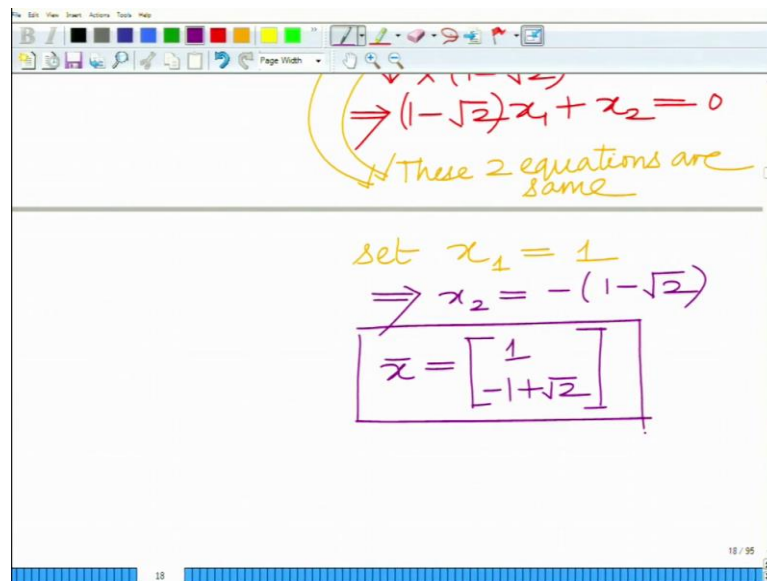 File Edit View Insert Actions Tools Help
B I
Page Width
⇒ (1-√2)x₁ + x₂ = 0
These 2 equations are
same
set x₁ = 1
⇒ x₂ = -(1-√2)
x̄ = [1
-1+√2]
18 / 95
18